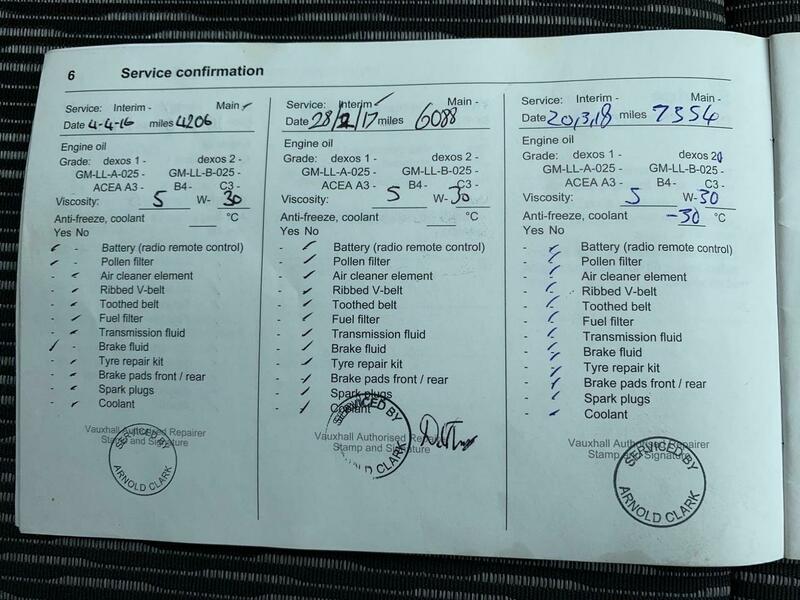 6 Service confirmation
Service: Interim - Main -
Date 4-4-16 miles 4206
Engine oil
Grade: dexos 1 - dexos 2 -
GM-LL-A-025 - GM-LL-B-025 -
ACEA A3 - B4 - C3 -
Viscosity: 5 W- 30
Anti-freeze, coolant ___ °C
Yes No
- - Battery (radio remote control)
- - Pollen filter
- - Air cleaner element
- - Ribbed V-belt
- - Toothed belt
- - Fuel filter
- - Transmission fluid
- - Brake fluid
- - Tyre repair kit
- - Brake pads front / rear
- - Spark plugs
- - Coolant
Vauxhall Authorised Repairer
Stamp and Signature
SERVICED BY
ARNOLD CLARK
Service: Interim - Main -
Date 28/2/17 miles 6088
Engine oil
Grade: dexos 1 - dexos 2 -
GM-LL-A-025 - GM-LL-B-025 -
ACEA A3 - B4 - C3 -
Viscosity: 5 W- 30
Anti-freeze, coolant ___ °C
Yes No
- - Battery (radio remote control)
- - Pollen filter
- - Air cleaner element
- - Ribbed V-belt
- - Toothed belt
- - Fuel filter
- - Transmission fluid
- - Brake fluid
- - Tyre repair kit
- - Brake pads front / rear
- - Spark plugs
- - Coolant
Vauxhall Authorised Repairer
Stamp and Signature
SERVICED BY
CLARK
Service: Interim - Main -
Date 20,3,18 miles 7354
Engine oil
Grade: dexos 1 - dexos 2
GM-LL-A-025 - GM-LL-B-025 -
ACEA A3 - B4 - C3 -
Viscosity: 5 W- 30
Anti-freeze, coolant -30 °C
Yes No
- - Battery (radio remote control)
- - Pollen filter
- - Air cleaner element
- - Ribbed V-belt
- - Toothed belt
- - Fuel filter
- - Transmission fluid
- - Brake fluid
- - Tyre repair kit
- - Brake pads front / rear
- - Spark plugs
- - Coolant
Vauxhall Authorised Repairer
Stamp and Signature
SERVICED BY
ARNOLD CLARK